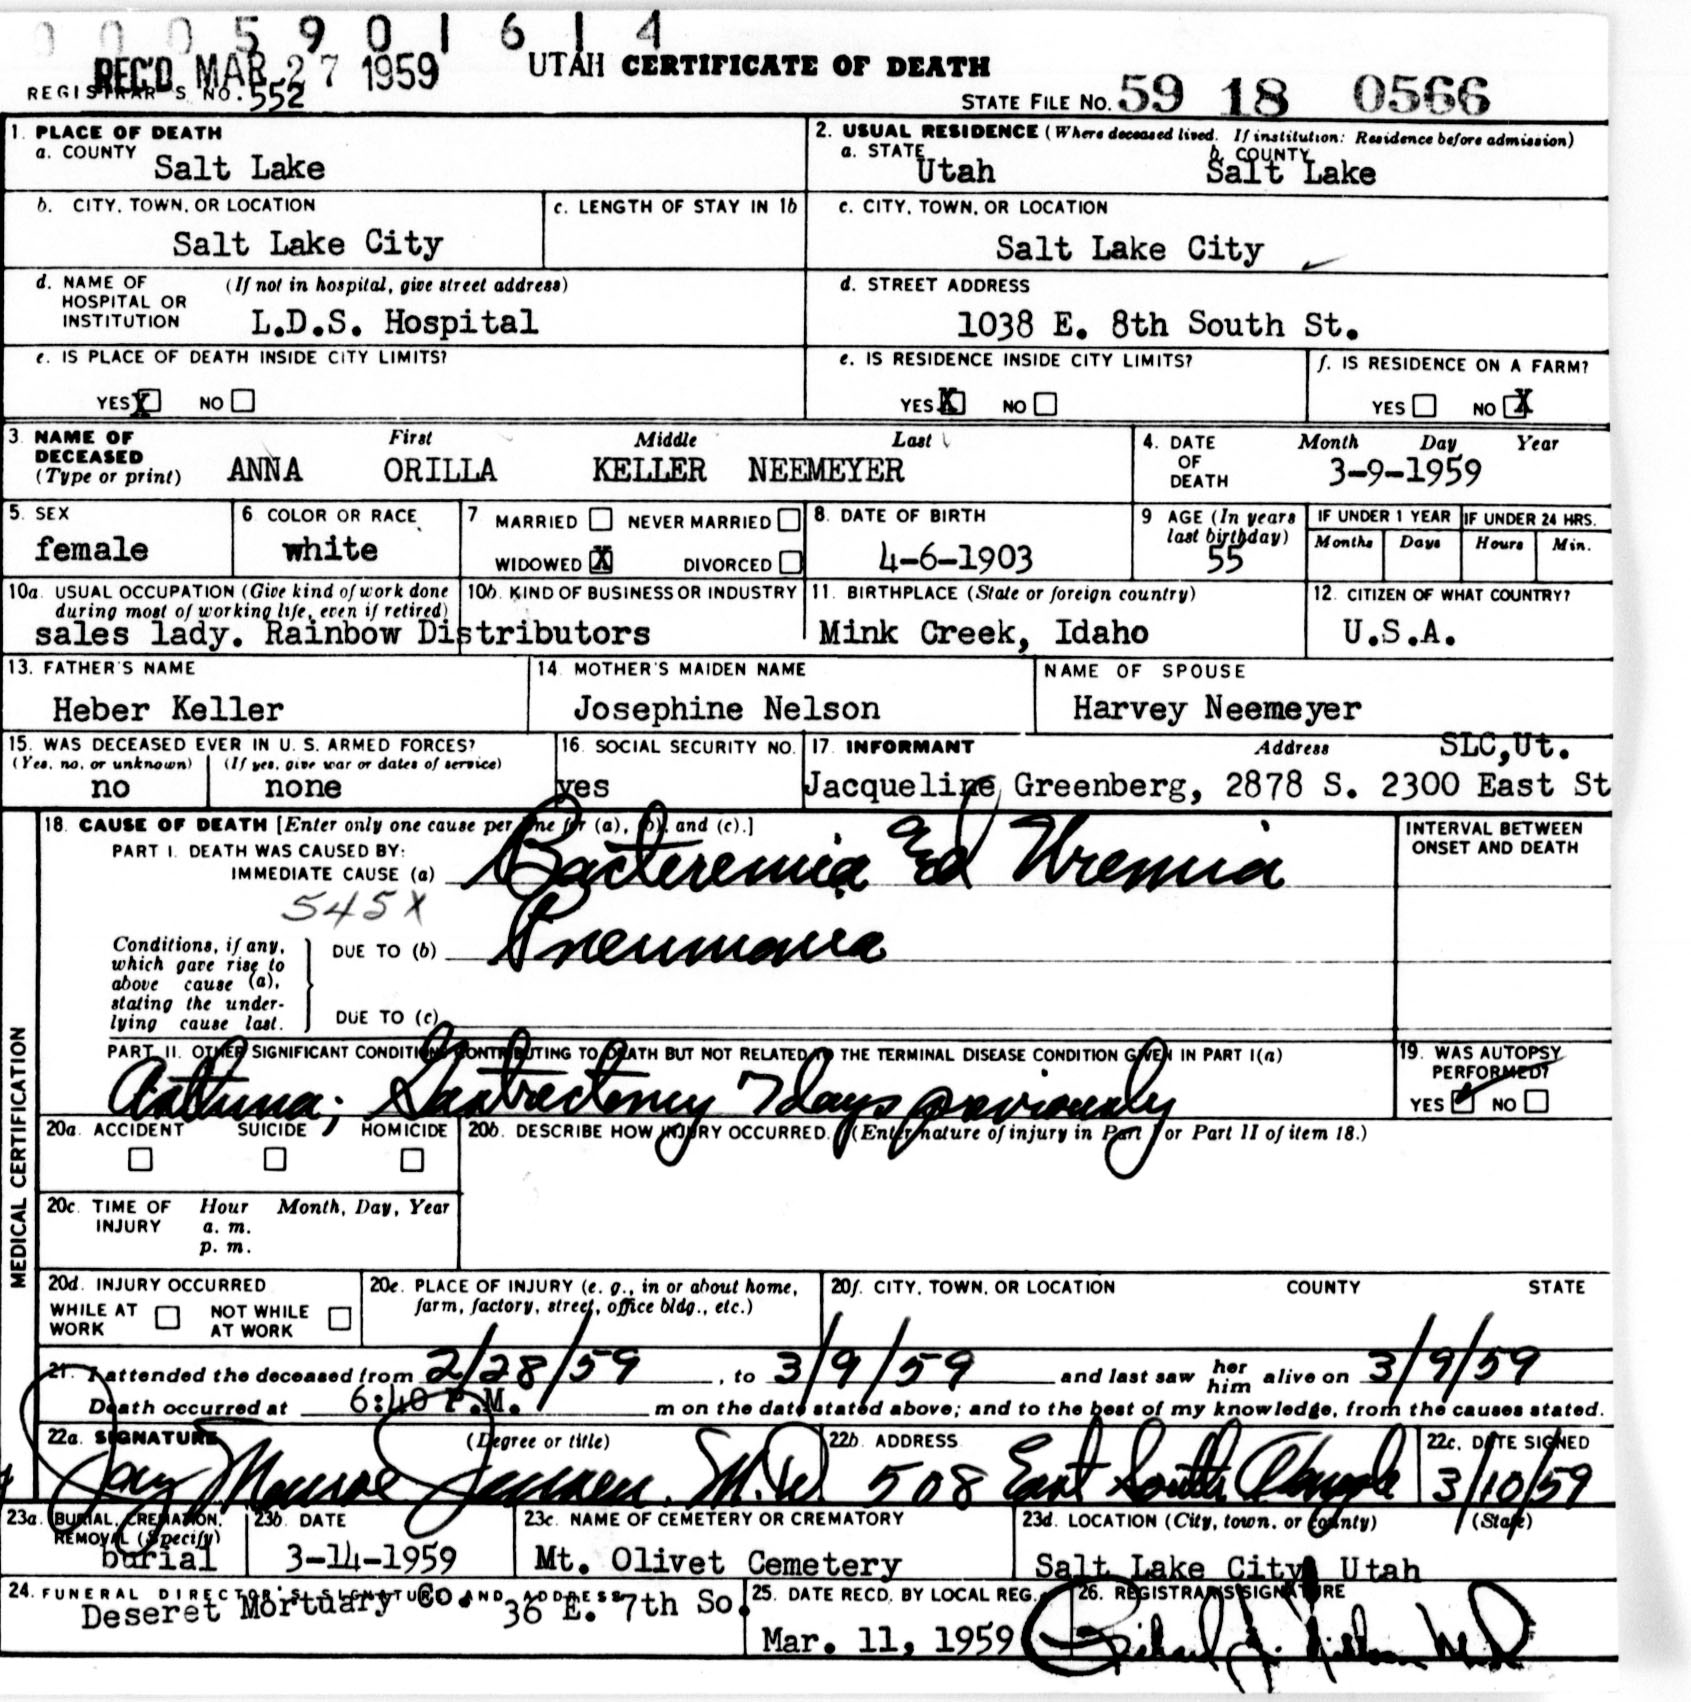 0 0 0 5 9 0 1 6 1 4
REC'D MAR 27 1959
UTAH CERTIFICATE OF DEATH
REGISTRAR'S NO. 552
STATE FILE NO. 59 18 0566
1. PLACE OF DEATH
a. COUNTY Salt Lake
2. USUAL RESIDENCE (Where deceased lived. If institution: Residence before admission)
a. STATE Utah b. COUNTY Salt Lake
b. CITY, TOWN, OR LOCATION
Salt Lake City
c. LENGTH OF STAY IN 1b
c. CITY, TOWN, OR LOCATION
Salt Lake City
d. NAME OF HOSPITAL OR INSTITUTION (If not in hospital, give street address)
L.D.S. Hospital
d. STREET ADDRESS
1038 E. 8th South St.
e. IS PLACE OF DEATH INSIDE CITY LIMITS?
YES X NO
e. IS RESIDENCE INSIDE CITY LIMITS?
YES X NO
f. IS RESIDENCE ON A FARM?
YES NO X
3. NAME OF DECEASED (Type or print) First Middle Last
ANNA ORILLA KELLER NEEMEYER
4. DATE OF DEATH Month Day Year
3-9-1959
5. SEX
female
6 COLOR OR RACE
white
7 MARRIED NEVER MARRIED
WIDOWED X DIVORCED
8. DATE OF BIRTH
4-6-1903
9 AGE (In years last birthday)
55
IF UNDER 1 YEAR IF UNDER 24 HRS.
Months Days Hours Min.
10a. USUAL OCCUPATION (Give kind of work done during most of working life, even if retired)
10b. KIND OF BUSINESS OR INDUSTRY
sales lady. Rainbow Distributors
11. BIRTHPLACE (State or foreign country)
Mink Creek, Idaho
12. CITIZEN OF WHAT COUNTRY?
U.S.A.
13. FATHER'S NAME
Heber Keller
14. MOTHER'S MAIDEN NAME
Josephine Nelson
NAME OF SPOUSE
Harvey Neemeyer
15. WAS DECEASED EVER IN U. S. ARMED FORCES?
(Yes, no, or unknown) (If yes, give war or dates of service)
no none
16. SOCIAL SECURITY NO.
yes
17. INFORMANT Address SLC,Ut.
Jacqueline Greenberg, 2878 S. 2300 East St
MEDICAL CERTIFICATION
18. CAUSE OF DEATH [Enter only one cause per line for (a), (b), and (c).]
INTERVAL BETWEEN ONSET AND DEATH
PART I. DEATH WAS CAUSED BY:
IMMEDIATE CAUSE (a) Bacteremia and Uremia
545X
Conditions, if any, which gave rise to above cause (a), stating the underlying cause last.
DUE TO (b) Pneumonia
DUE TO (c)
PART II. OTHER SIGNIFICANT CONDITIONS CONTRIBUTING TO DEATH BUT NOT RELATED TO THE TERMINAL DISEASE CONDITION GIVEN IN PART I(a)
Asthma; Gastrectomy 7 days previously
19. WAS AUTOPSY PERFORMED?
YES NO
20a. ACCIDENT SUICIDE HOMICIDE
20b. DESCRIBE HOW INJURY OCCURRED. (Enter nature of injury in Part I or Part II of item 18.)
20c. TIME OF INJURY Hour Month, Day, Year
a. m.
p. m.
20d. INJURY OCCURRED
WHILE AT WORK NOT WHILE AT WORK
20e. PLACE OF INJURY (e. g., in or about home, farm, factory, street, office bldg., etc.)
20f. CITY, TOWN, OR LOCATION COUNTY STATE
21. I attended the deceased from 2/28/59, to 3/9/59 and last saw her him alive on 3/9/59
Death occurred at 6:40 P.M. m on the date stated above; and to the best of my knowledge, from the causes stated.
22a. SIGNATURE (Degree or title)
Jay Monroe Jensen. M.D.
22b. ADDRESS
508 East South Temple
22c. DATE SIGNED
3/10/59
23a. BURIAL, CREMATION, REMOVAL (Specify)
burial
23b. DATE
3-14-1959
23c. NAME OF CEMETERY OR CREMATORY
Mt. Olivet Cemetery
23d. LOCATION (City, town, or county) (State)
Salt Lake City, Utah
24. FUNERAL DIRECTOR'S SIGNATURE AND ADDRESS
Deseret Mortuary Co. 36 E. 7th So.
25. DATE RECD. BY LOCAL REG.
Mar. 11, 1959
26. REGISTRAR'S SIGNATURE